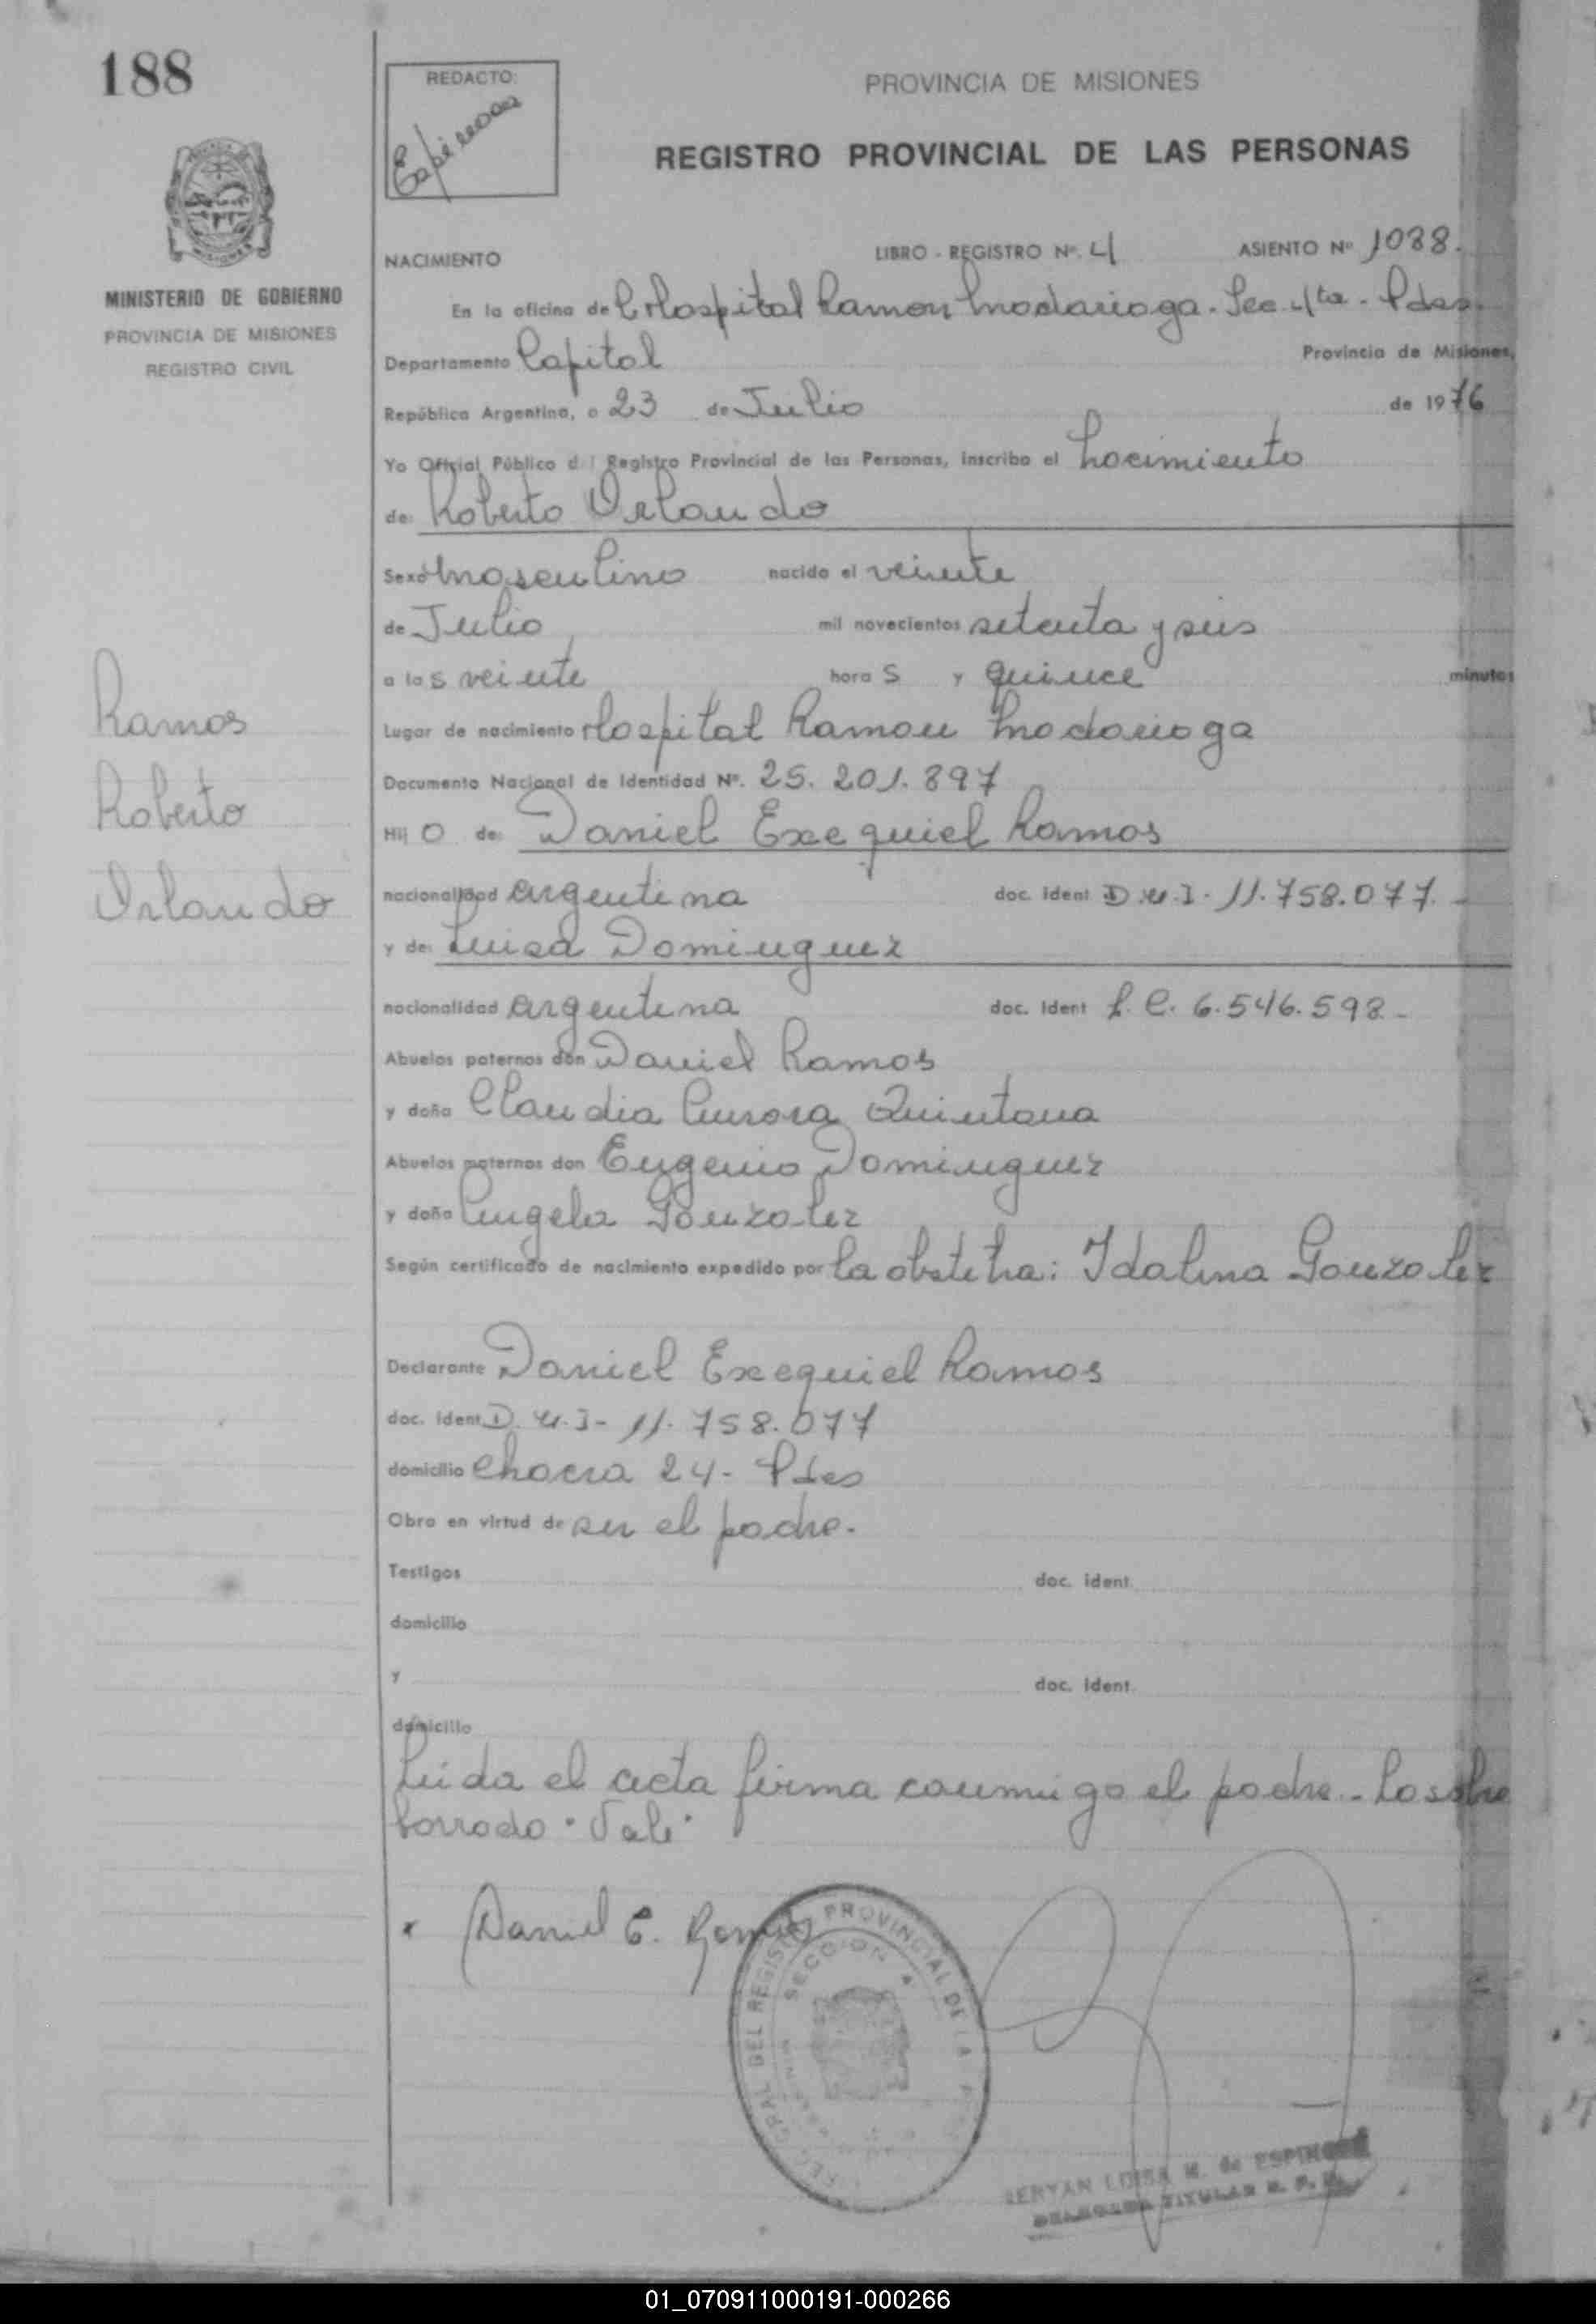 188
REDACTO:
Espinosa
PROVINCIA DE MISIONES
REGISTRO PROVINCIAL DE LAS PERSONAS
MINISTERIO DE GOBIERNO
PROVINCIA DE MISIONES
REGISTRO CIVIL
NACIMIENTO LIBRO - REGISTRO Nº. 4 ASIENTO Nº 1088.
En la oficina de Hospital Ramon Madariaga. Sec 4ta - Pdas.
Departamento Capital Provincia de Misiones,
República Argentina, a 23 de Julio de 1976
Yo Oficial Público d l Registro Provincial de las Personas, inscribo el nacimiento
de: Roberto Orlando
Sexo Masculino nacido el veinte
de Julio mil novecientos setenta y seis
a las veinte hora s y quince minutos
Lugar de nacimiento Hospital Ramon Madariaga
Documento Nacional de Identidad Nº. 25.201.897
Hij o de: Daniel Exequiel Ramos
nacionalidad argentina doc. ident D.N.I - 11.758.077. -
y de: Luisa Dominguez
nacionalidad argentina doc. ident L.C. 6.546.598 -
Abuelos paternos don Daniel Ramos
y doña Claudia Aurora Quintana
Abuelos maternos don Eugenio Dominguez
y doña Angela Gonzalez
Según certificado de nacimiento expedido por la obstetra: Idalina Gonzalez
Declarante Daniel Exequiel Ramos
doc. ident D.N.I - 11.758.077
domicilio Chacra 24 - Pdas
Obra en virtud de ser el padre.
Testigos doc. ident.
domicilio
y doc. ident.
domicilio
Leida el acta firma conmigo el padre - Lo sobre
borrado "Vale"
x Daniel E. Ramos
Ramos
Roberto
Orlando
GRAL DEL REGISTRO PROVINCIAL DE LA
SECCION 4
LUISA M. de ESPINOSA
TITULAR R. P. P.
01_070911000191-000266